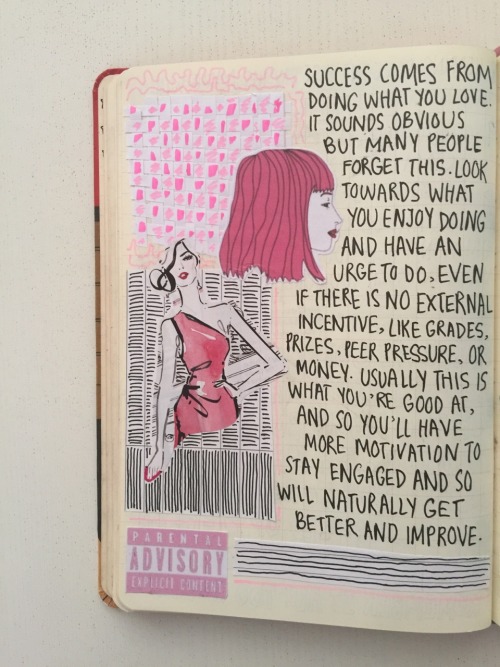 SUCCESS COMES FROM
DOING WHAT YOU LOVE.
IT SOUNDS OBVIOUS
BUT MANY PEOPLE
FORGET THIS. LOOK
TOWARDS WHAT
YOU ENJOY DOING
AND HAVE AN
URGE TO DO, EVEN
IF THERE IS NO EXTERNAL
INCENTIVE, LIKE GRADES,
PRIZES, PEER PRESSURE, OR
MONEY. USUALLY THIS IS
WHAT YOU'RE GOOD AT,
AND SO YOU'LL HAVE
MORE MOTIVATION TO
STAY ENGAGED AND SO
WILL NATURALLY GET
BETTER AND IMPROVE.
PARENTAL
ADVISORY
EXPLICIT CONTENT